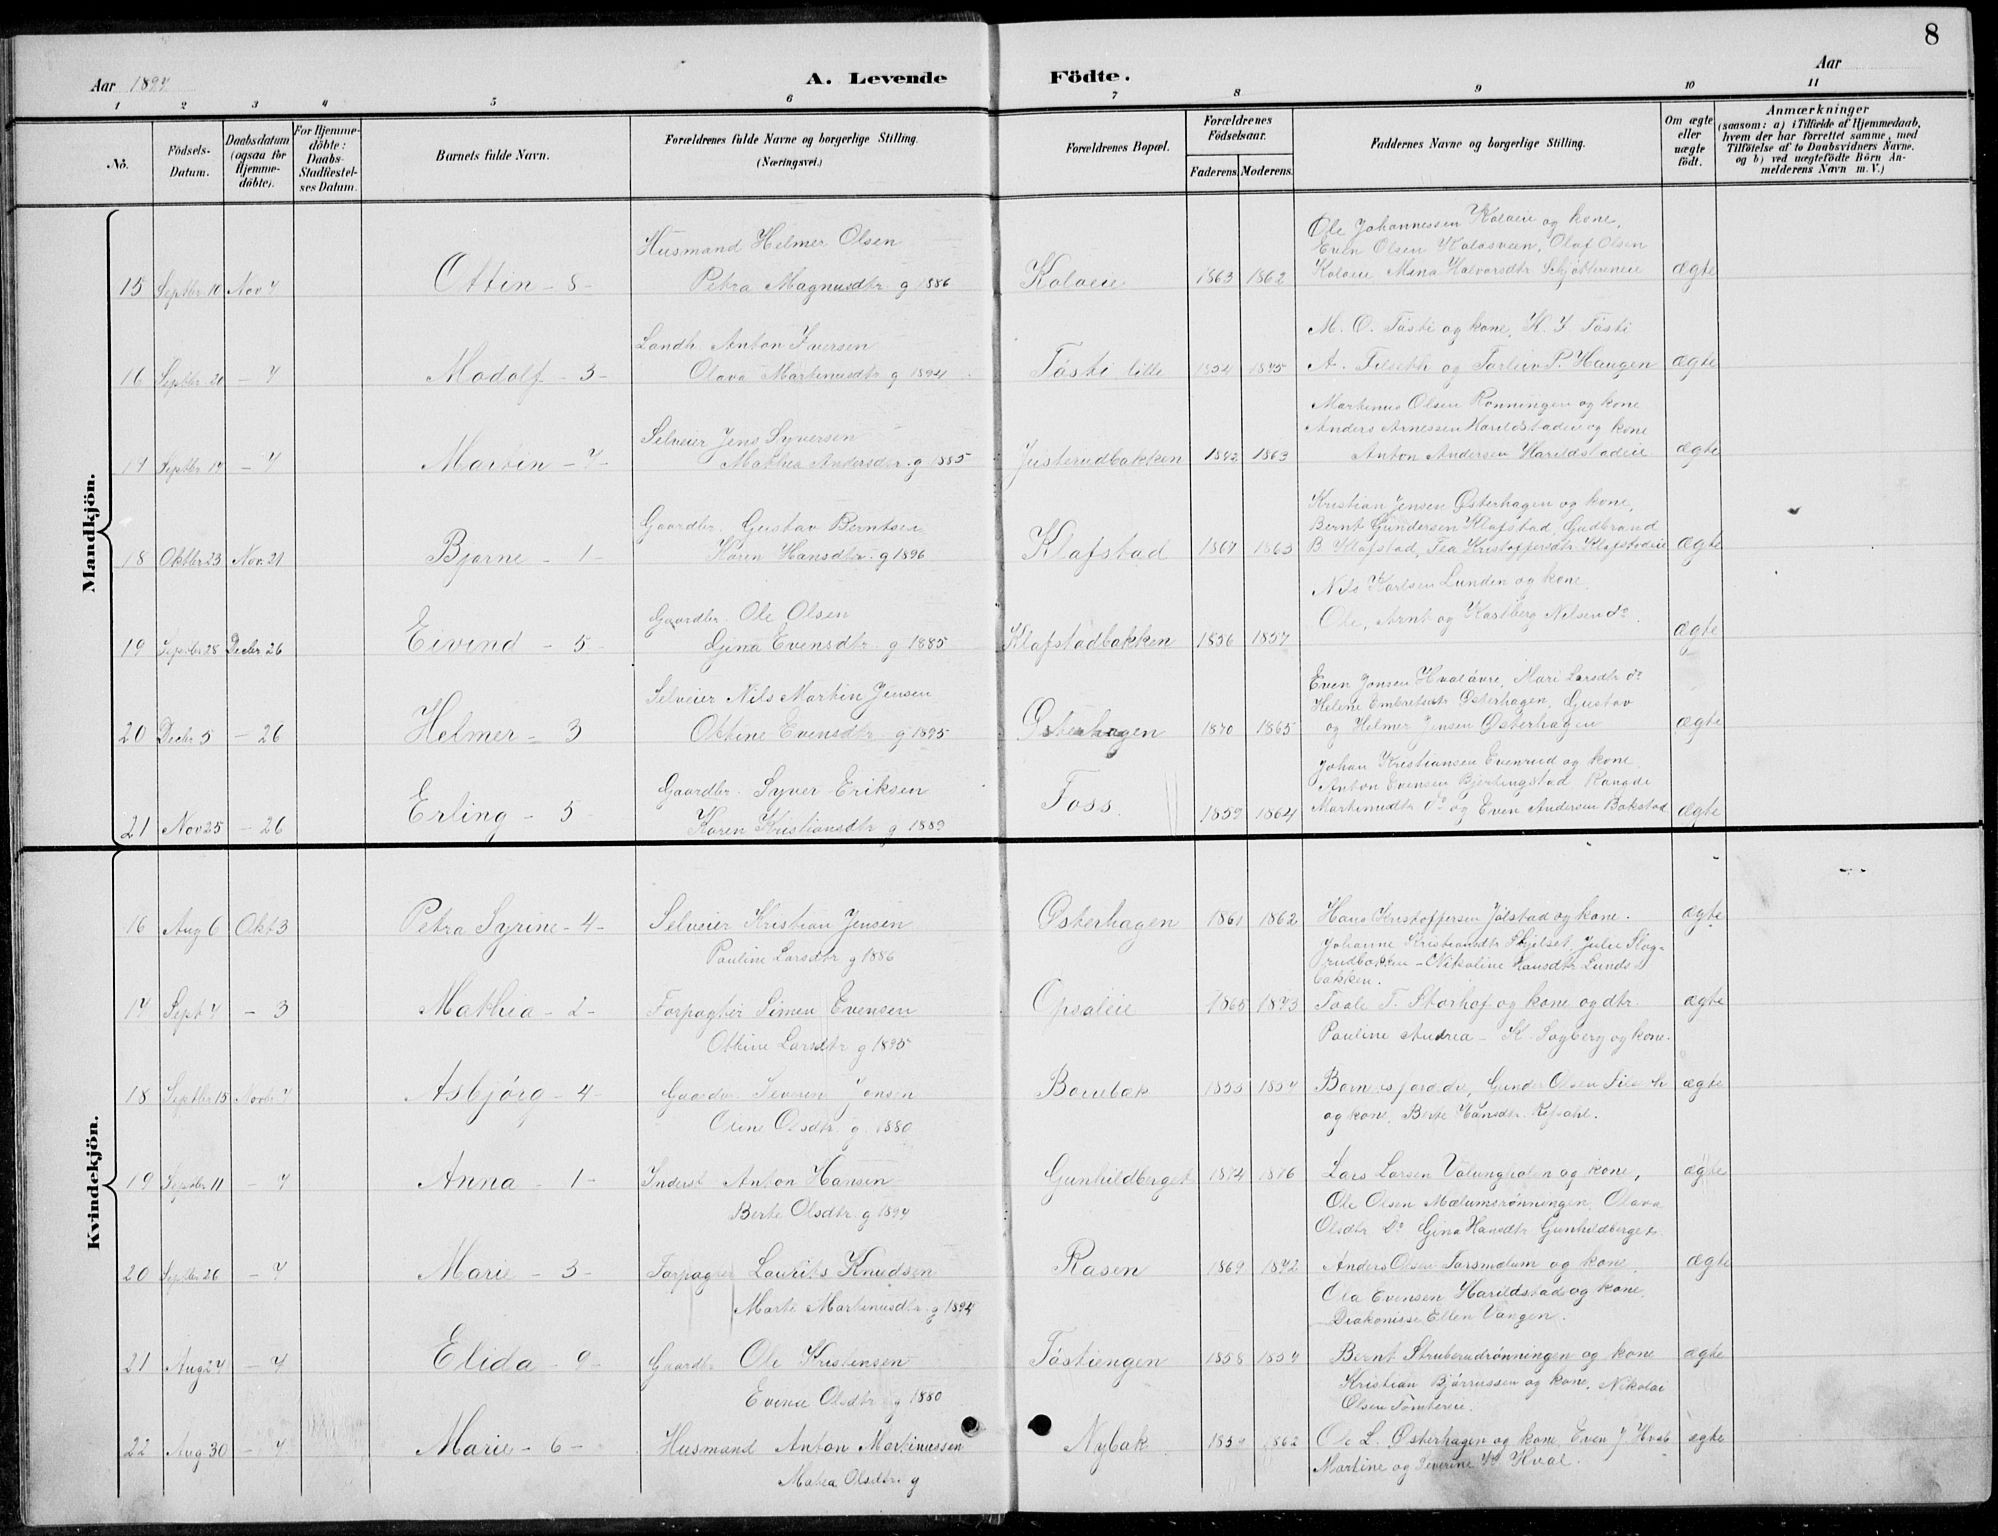 8
Aar 1897
A. Levende Födte.
Aar
1 2 3 4 5 6 7 8 9 10 11
No.
Födsels-Datum.
Daabsdatum (ogsaa for Hjemme-döbte).
For Hjemme-döbte: Daabs-Stadfæstelses Datum.
Barnets fulde Navn.
Forældrenes fulde Navne og borgerlige Stilling. (Næringsvei.)
Forældrenes Bopæl.
Forældrenes Födselsaar.
Faderens. Moderens.
Faddernes Navne og borgerlige Stilling.
Om ægte eller uægte födt.
Anmærkninger
(saasom: a) i Tilfælde af Hjemmedaab,
hvem der har forrettet samme, med
Tilföielse af to Daabsvidners Navne.
og b) ved uægtefödte Börn An-
melderens Navn m. V.)
Mandkjön.
Husmand Helmer Olsen
Ole Johannessen Kolaeie og kone,
Even Olsen Kolosveen, Olaf Olsen
15 Septbr 10 Nov 7 Ottin - 8 - Petra Magnusdtr g 1886 Kolaeie 1863 1862 Kolaeie Mina Halvorsdtr ægte
Landh. Anton Iversen
M. O. Tåsti og kone, K. J. Tåsti
16 Septbr 20 - 7 Modolf - 3 - Olava Martinusdtr g 1894 Tåsti lille 1854 A. Filseth og Torleiv P. Haugen ægte
Martinus Olsen Rønningen og kone
Selveier Jens Syversen
Anders Arnessen Harildstadeie og kone
17 Septbr 14 - 7 Martin - 7 - Mathea Andersdtr. g 1885 Justerudbakken 1863 Anton Andersen Harildstadeie ægte
Kristian Jensen Østerhagen og kone,
Gaardbr. Gustav Berntsen
Bernt Gundersen Klafstad Gudbrand
18 Oktbr 23 Nov. 21 Bjarne - 1 - Karen Hansdtr. g 1896 Klafstad 1867 1863 B. Klafstad, Tea Kristoffersdtr Klafstadeie ægte
Nils Karlsen Lunden og kone
Gaardbr. Ole Olsen
Ole, Arnt og Karlberg Nilsen do.
19 Septbr 28 Decbr 26 Eivind - 5 - Gina Evensdtr. g 1885 Klafstadbakken 1856 1857 ægte
Selveier Nils Martin Jensen
Even Jonsen Hvaløvre, Mari Larsdtr do
Helene Embretsdtr Østerhagen, Gustav
20 Decbr 5 - 26 Helmer - 3 Ottine Evensdtr. g 1895 Østerhagen 1870 1865 og Helmer Jensen Østerhagen ægte
Johan Kristiansen Evenrud og kone
Gaardbr. Syver Eriksen
Anton Evensen Bjerlingstad
21 Nov 25 - 26 Erling - 5 Karen Kristiansdtr g 1889 Foss. 1859 1864 Martinusdtr do og Even Andersen Bakstad ægte
Kvindekjön.
16 Aug 6 Okt 3 Petra Syrine - 4 - Selveier Kristian Jensen Østerhagen 1861 1862 Hans Kristoffersen Jølstad og kone. ægte
Pauline Larsdtr g 1886
Johanne Kristiansdtr Skjelset, Julie Slag-
rudbakken - Nikoline Hansdtr Lunds-
bakken.
17 Sept 7 - 3 Mathea - 2 - Forpagter Simen Evensen Opsaleie 1865 1873 Taale T. Storhof og kone og dtr. ægte
Ottine Larsdtr g 1895
Pauline Andrea - K. Sogberg og kone.
18 Septbr 15 Novbr 7 Asbjørg - 4 - Gaardbr Severin Jonsen Borrebæk 1855 1857 Barnets forældre, Gunder Olsen og kone, Berte Hansdtr. ægte
Oline Olsdtr. g. 1880
19 Septbr 11 - 7 Anna - 1 - Inderst Anton Hansen Gunhildberget 1874 1876 Lars Larsen og kone, ægte
Berte Olsdtr. g 1897
Ole Olsen Mælumsrønningen, Olava
Olsdtr Do Gina Hansdtr Gunhildberget.
20 Septbr 26 - 7 Marie - 3 - Forpagter Laurits Knudsen Rasen 1869 1872 Anders Olsen Torsmolum og kone ægte
Marte Martinusdtr. g 1894
Ola Evensen Harildstad og kone,
Diakonisse Ellen Vangen.
21 Aug 27 - 7 Elida - 9 - Gaardbr Ole Kristensen Tåstiengen 1858 1857 Bernt Struberudrønningen og kone ægte
Evine Olsdtr g 1880
Kristian og kone, Nikolai
Olsen Tomtereie.
22 Aug 30 - 7 Marie - 6 - Husmand Anton Martinussen Nybak 1862 Ole L. Østerhagen og kone Even J Hval ægte
Matea Olsdtr. g
Martine og Severine Hval.